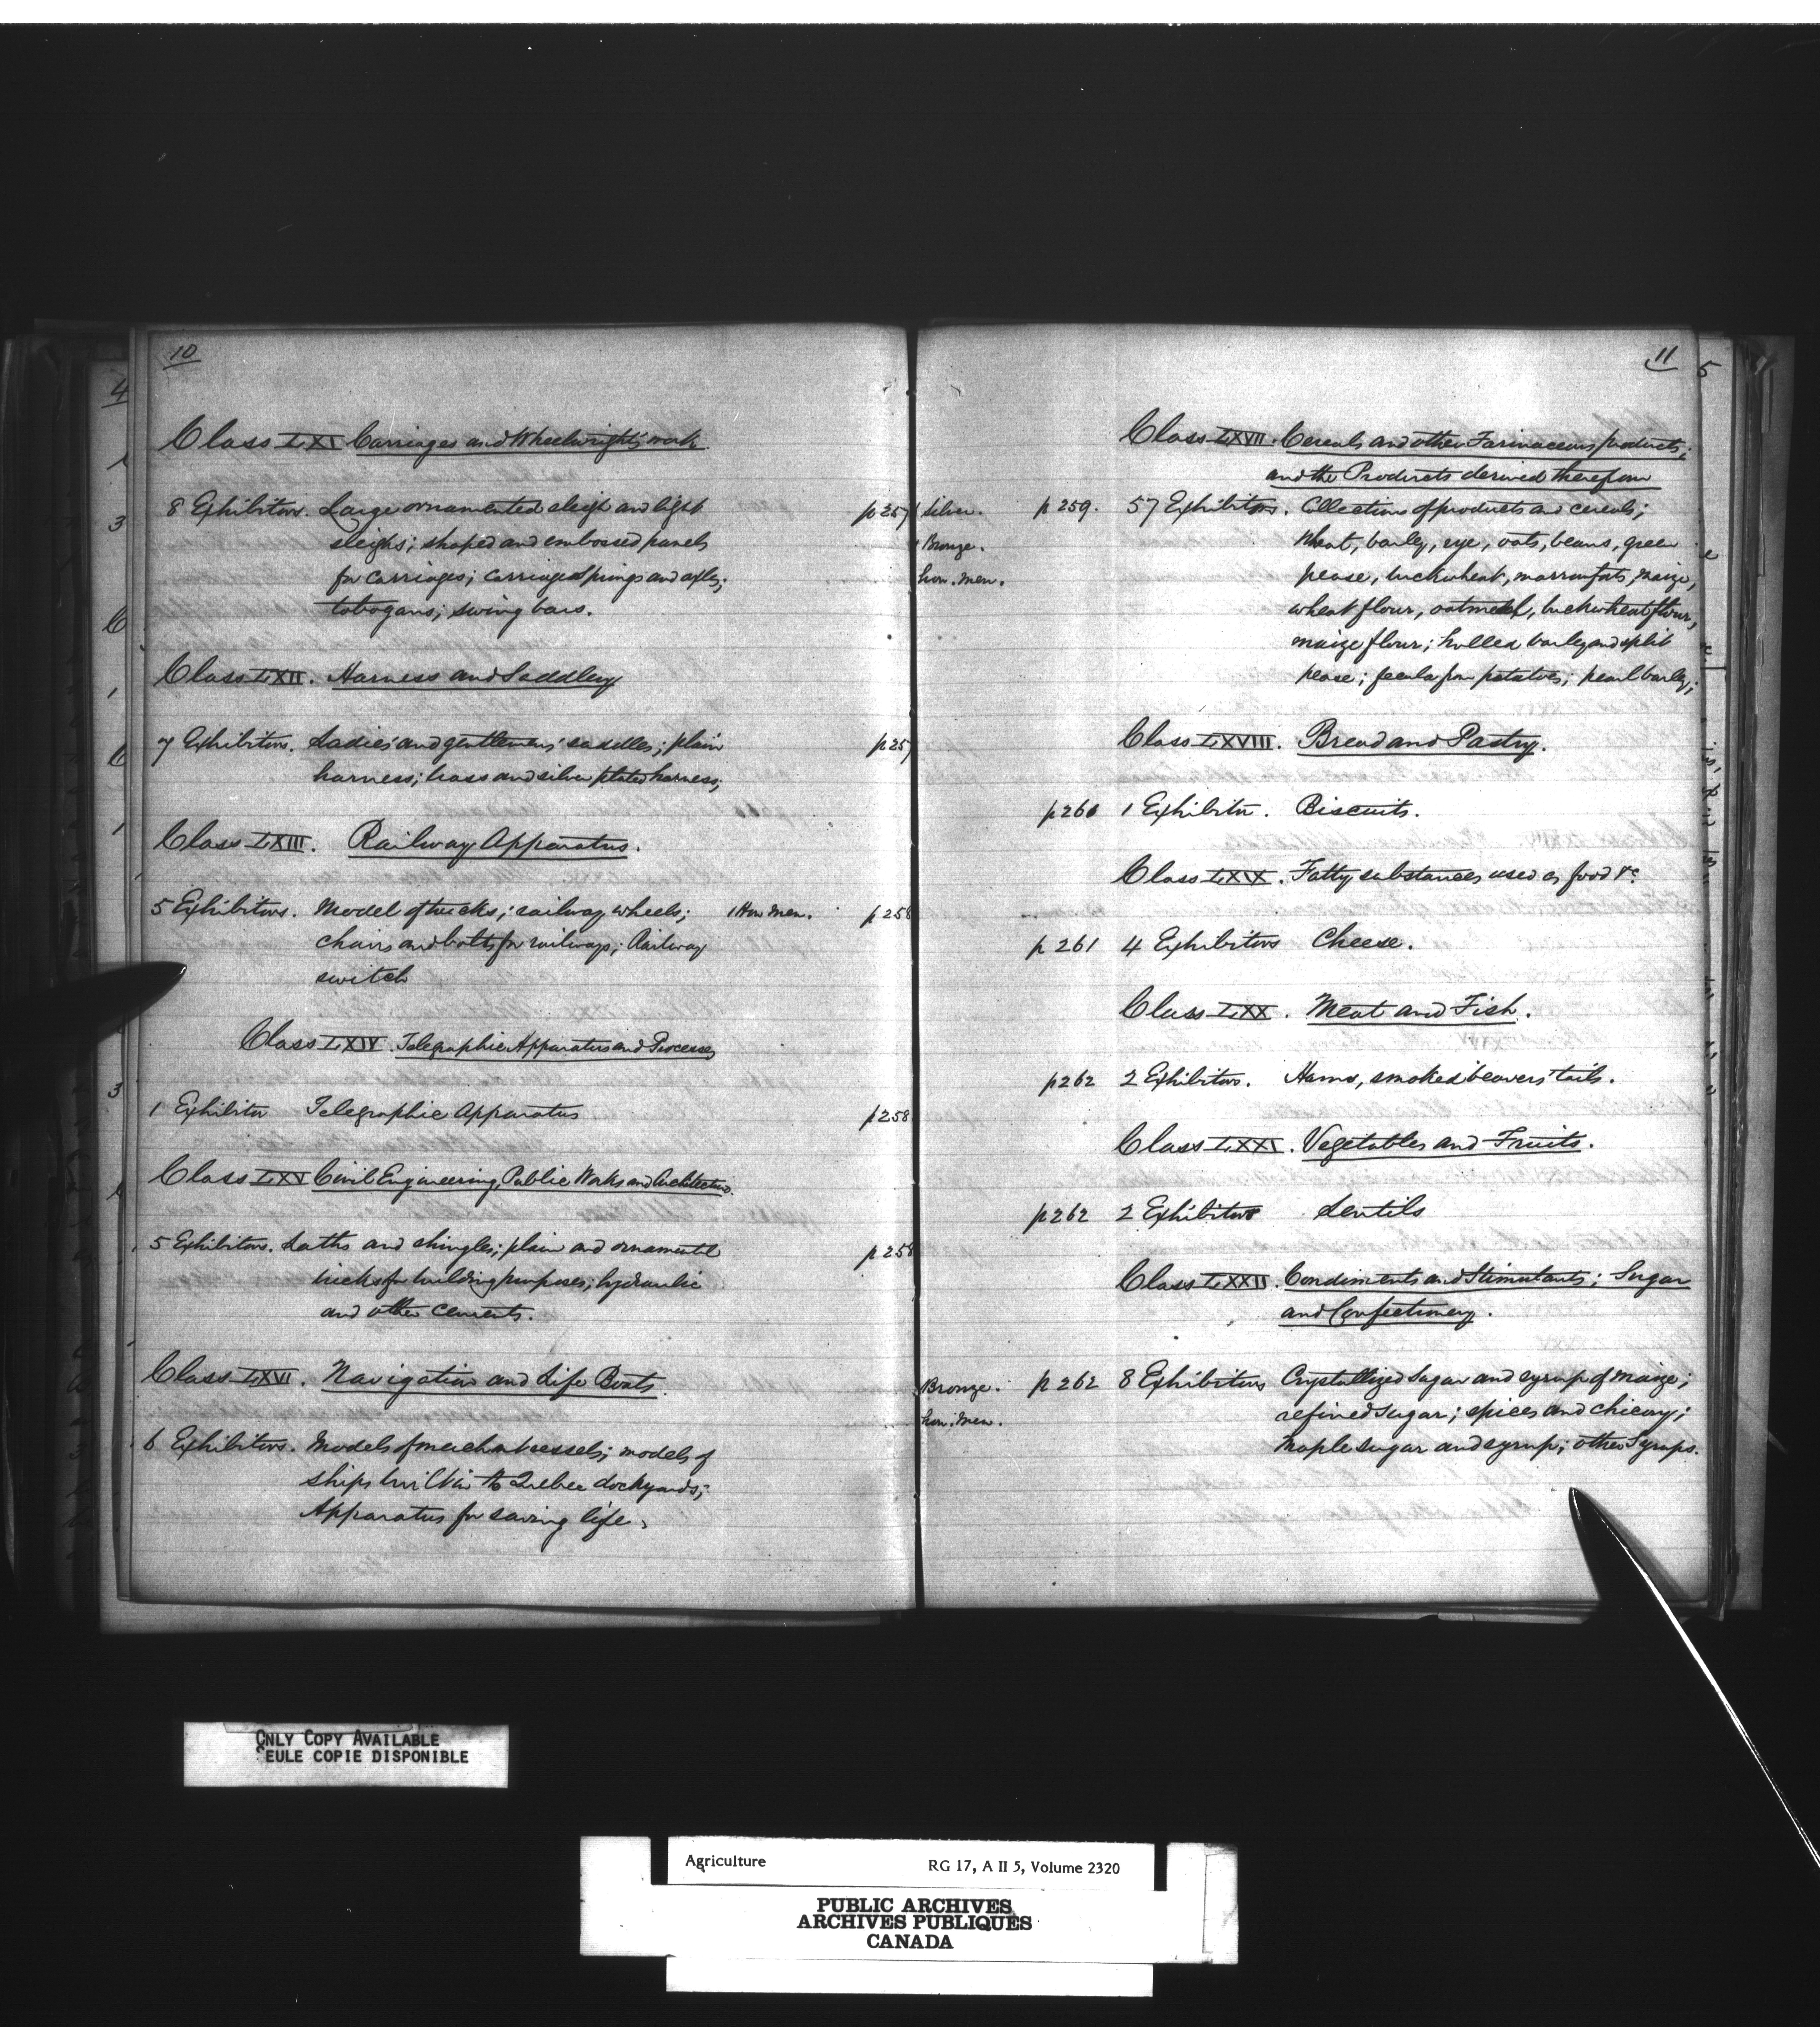 10
Class LXI Carriages and Wheelwright's work
8 Exhibitors. Large ornamented sleigh and light p257
sleighs; shaped and embossed panels
for carriages; carriage springs and axles;
tobogans; swing bars.
Class LXII. Harness and Saddlery
7 Exhibitors. Ladies' and gentlemens' saddles; plain p257
harness; brass and silver plated harness;
Class LXIII. Railway Apparatus.
5 Exhibitors. Model of trucks; railway wheels; 1 Hon Men. p258
chairs and bolts for railways; Railway
switch
Class LXIV. Telegraphic Apparatus and Processes
1 Exhibitor Telegraphic Apparatus p258
Class LXV Civil Engineering, Public Works and Architecture.
5 Exhibitors. Laths and shingles; plain and ornamental p258
bricks for building purposes; hydraulic
and other cements.
Class LXVI. Navigation and Life Boats.
6 Exhibitors. Models of merchant vessels; models of
ships built in the Quebec dockyards;
Apparatus for saving life.
11
Class LXVII. Cereals and other Farinaceous products;
and the Products derived therefrom
1 Silver. p 259. 57 Exhibitors. Collections of products and cereals;
1 Bronze. Wheat, barley, rye, oats, beans, green
hon. men. pease, buckwheat, marrowfats, maize,
wheat flour, oatmeal, buckwheat flour,
maize flour; hulled barley and split
pease; fecula from potatoes; pearl barley;
Class LXVIII. Bread and Pastry.
p260 1 Exhibitor. Biscuits.
Class LXIX. Fatty substances used as food &c.
p 261 4 Exhibitors Cheese.
Class LXX. Meat and Fish.
p262 2 Exhibitors. Hams, smoked beavers' tails.
Class LXXI. Vegetables and Fruits.
p262 2 Exhibitors Lentils
Class LXXII. Condiments and Stimulants; Sugar
and Confectionery.
Bronze. p 262 8 Exhibitors Crystallized Sugar and syrup of maize;
hon. men. refined sugar; spices and chicory;
Maple sugar and syrup; other Syrups.
4
5
ONLY COPY AVAILABLE
SEULE COPIE DISPONIBLE
Agriculture RG 17, A II 5, Volume 2320
PUBLIC ARCHIVES
ARCHIVES PUBLIQUES
CANADA